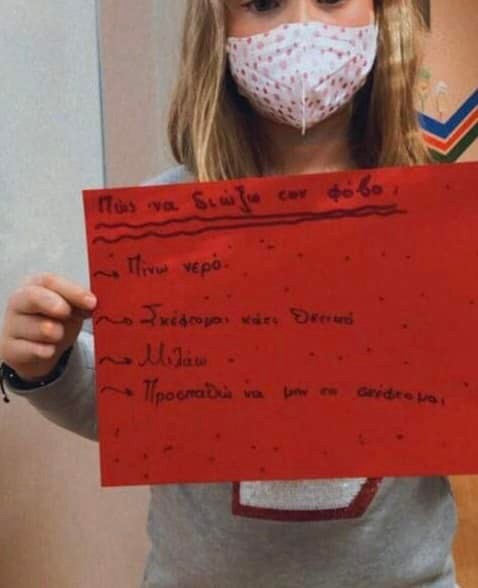 Πώς να διώξω τον φόβο;
Πίνω νερό.
Σκέφτομαι κάτι θετικό
Μιλάω
Προσπαθώ να μην το σκέφτομαι